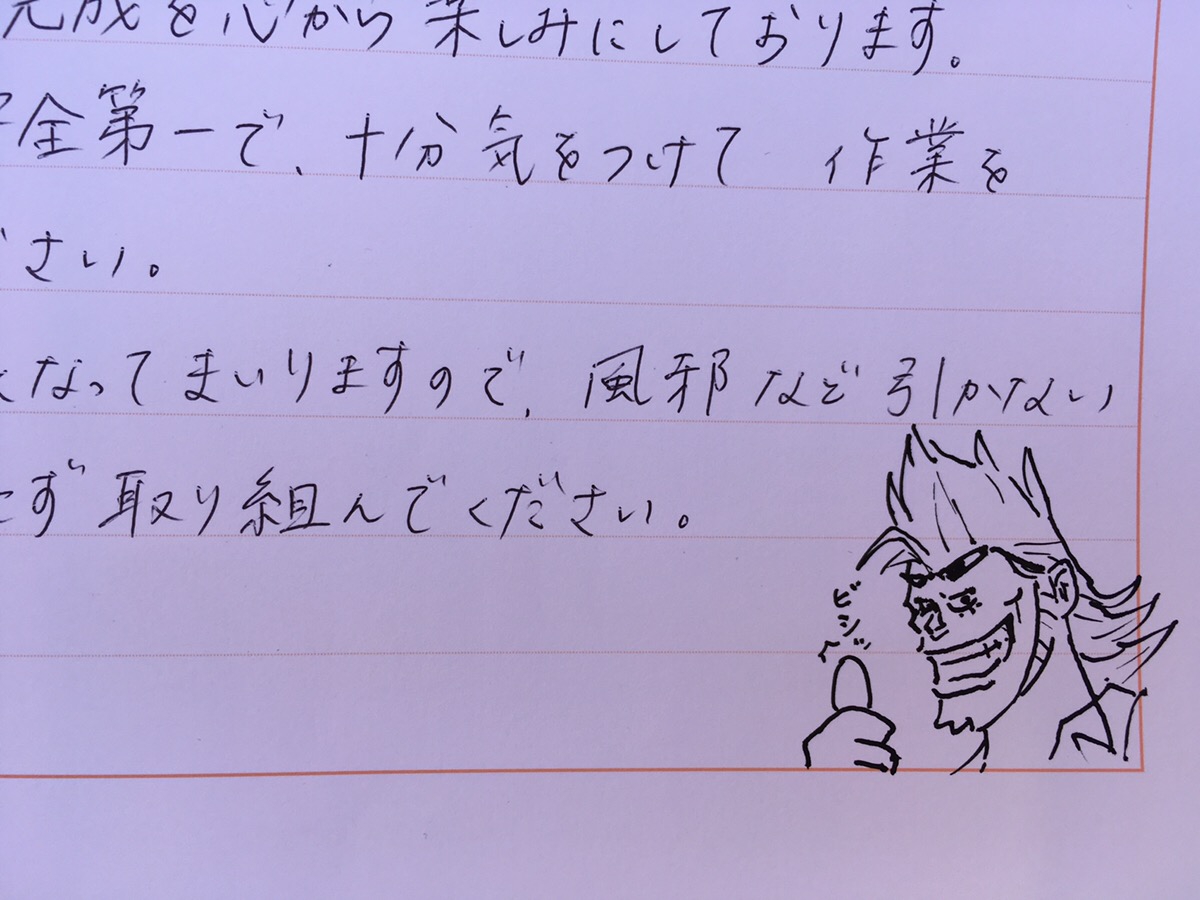 完成を心から楽しみにしております。
安全第一で、十分気をつけて 作業を
ださい。
なってまいりますので、風邪など引かない
ず取り組んでください。
ビシッ